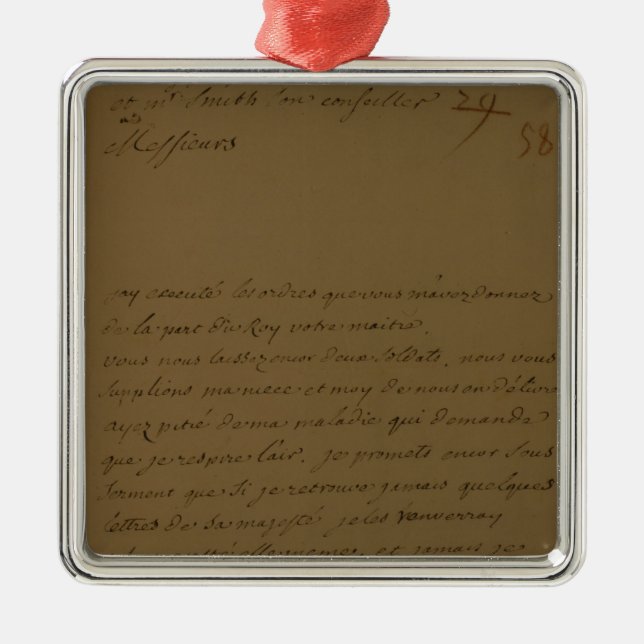 et mr. Smith son conseiller 29
58
Messieurs
jay executé les ordres que vous m'avez donnez
de la part du Roy votre maitre.
vous nous laissez encor deux soldats. nous vous
supplions ma niece et moy de nous en délivre
ayez pitié de ma maladie qui demande
que je respire l'air. je promets encor sous
serment que si je retrouve jamais quelques
lettres de sa majesté je les renverray
et jamais je